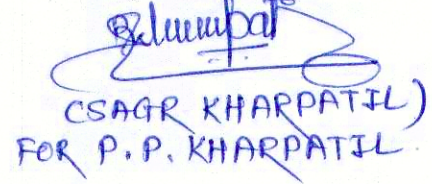 (SAGR KHARPATIL)
FOR P.P. KHARPATIL